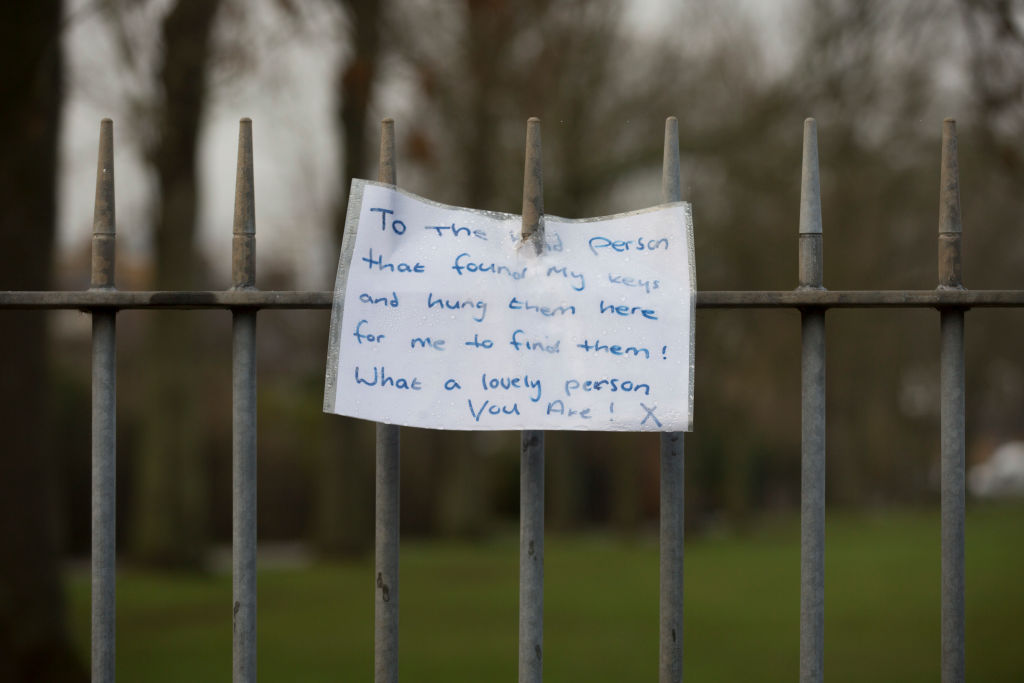 To The kind person
that found My keys
and hung them here
for me to find them!
What a lovely person
You Are! X